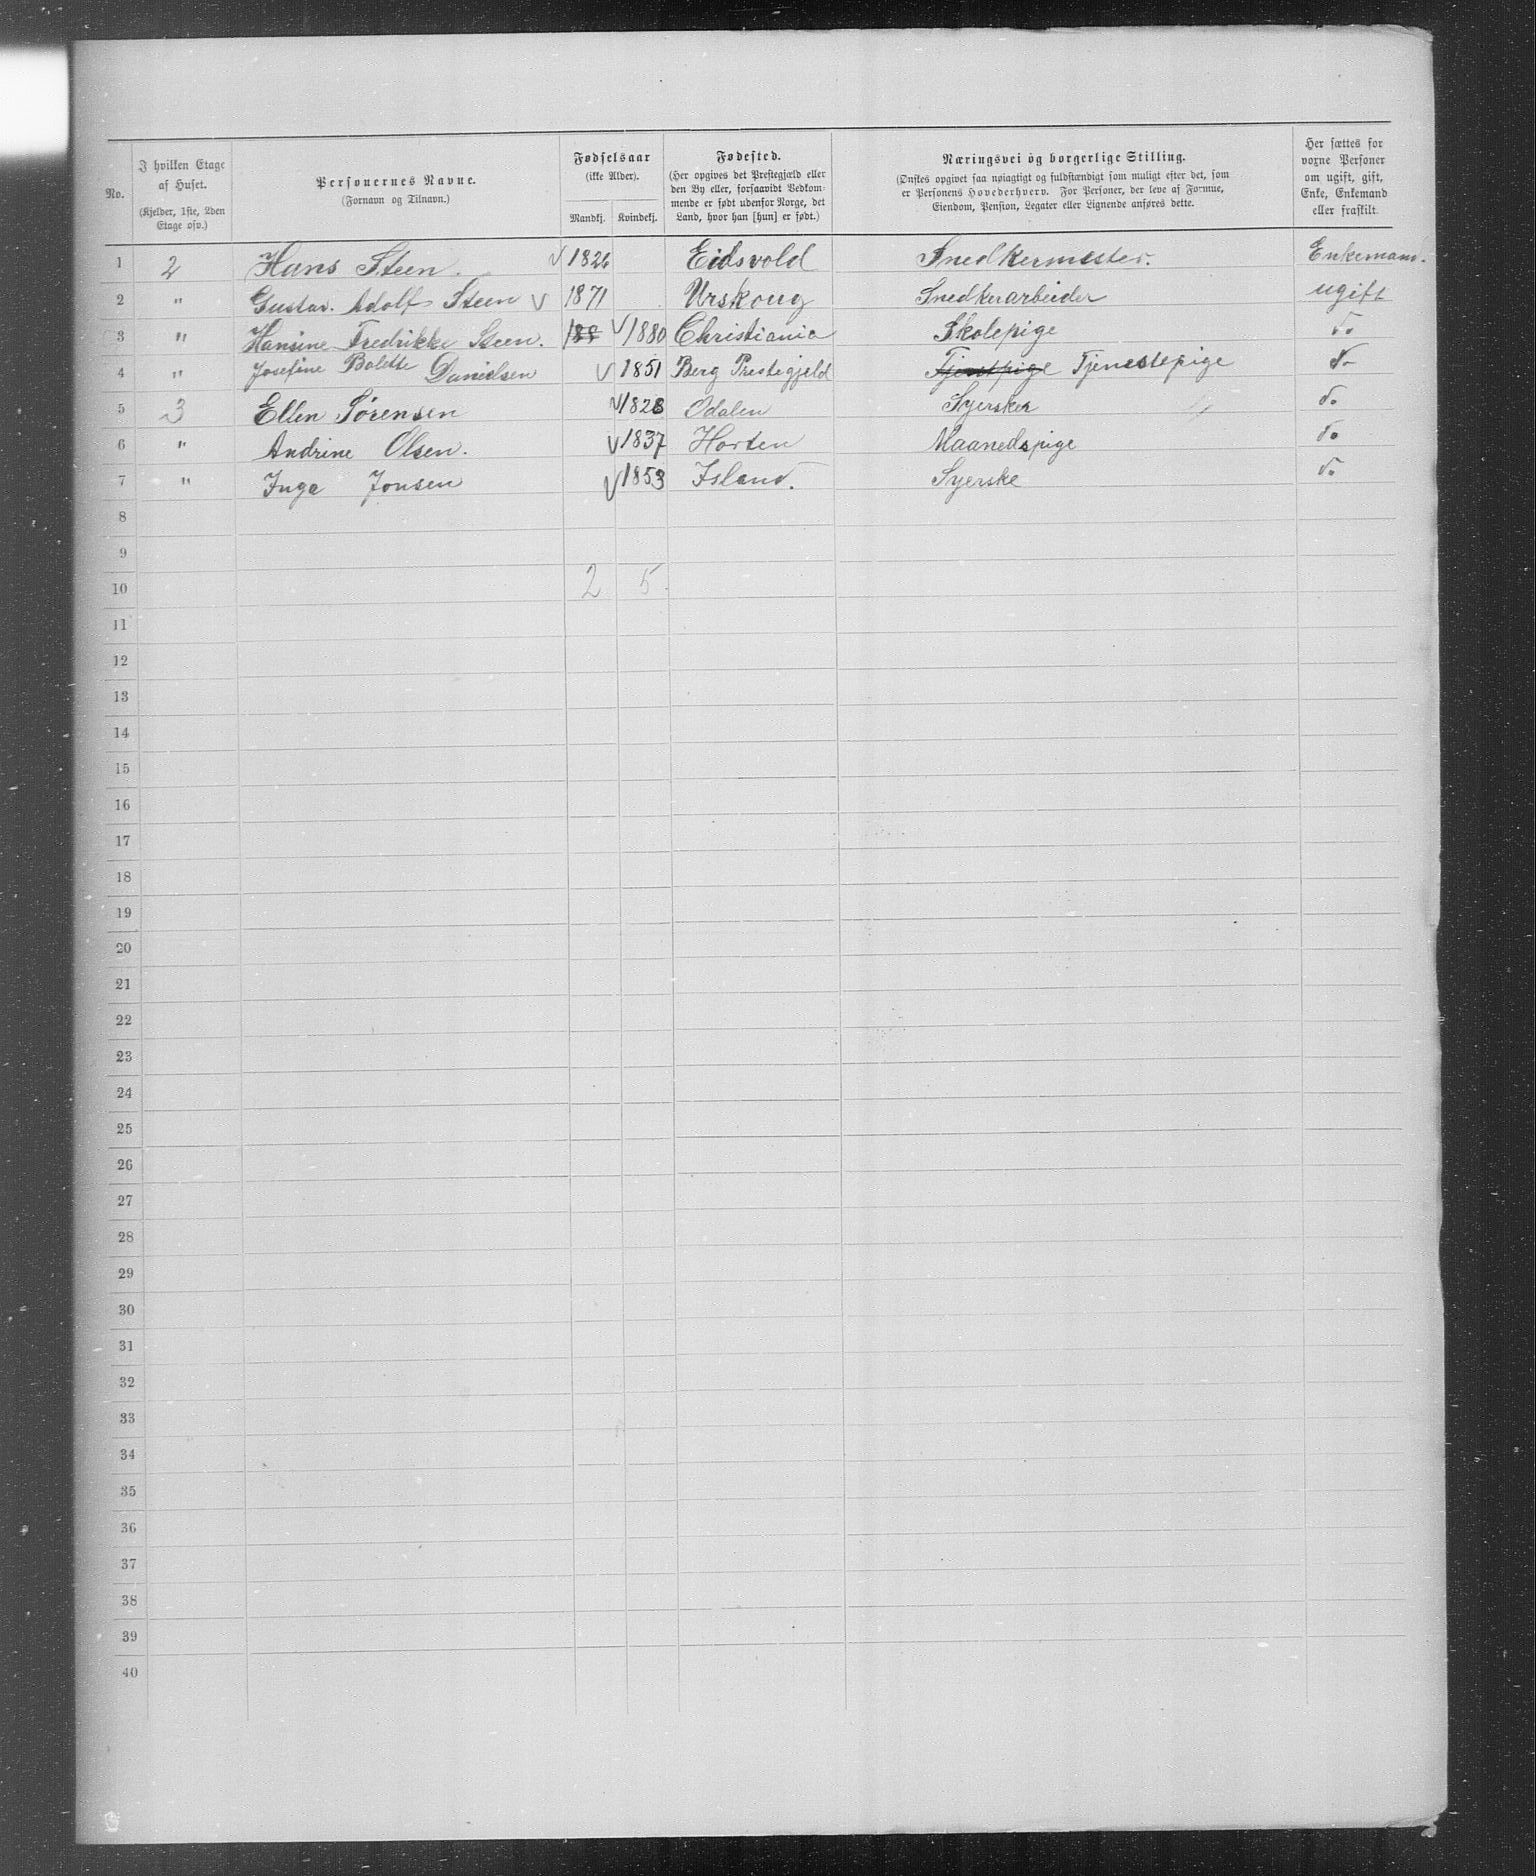 No.
I hvilken Etage af Huset.
(Kjelder, 1ste, 2den Etage osv.)
Personernes Navne.
(Fornavn og Tilnavn.)
Fødselsaar
(ikke Alder).
Mandkj. Kvindekj.
Fødested.
(Her opgives det Prestegjæld eller
den By eller, forsaavidt Vedkom-
mende er født udenfor Norge, det
Land, hvor han [hun] er født.)
Næringsvei og borgerlige Stilling.
(Ønskes opgivet saa nøiagtigt og fuldstændigt som muligt efter det, som
er Personens Hovederhverv. For Personer, der leve af Formue,
Eiendom, Pension, Legater eller Lignende anføres dette.
Her sættes for
voxne Personer
om ugift, gift,
Enke, Enkemand
eller fraskilt.
1 2 Hans Steen. 1826 Eidsvold Snedkermester. Enkemann.
2 " Gustav. Adolf Steen 1871 Urskoug Snedkerarbeider ugift
3 " Hansine Fredrikke Steen. 188 1880 Christiania Skolepige do
4 " Josefine Bolette Danielsen 1851 Berg Prestegjeld Tjenstpige Tjenestepige do
5 3 Ellen Sørensen 1828 Odalen Syerske do
6 " Andrine Olsen. 1837 Horten Maanedspige do
7 " Inga Jonsen 1853 Island. Syerske do
8
9
10 2 5
11
12
13
14
15
16
17
18
19
20
21
22
23
24
25
26
27
28
29
30
31
32
33
34
35
36
37
38
39
40